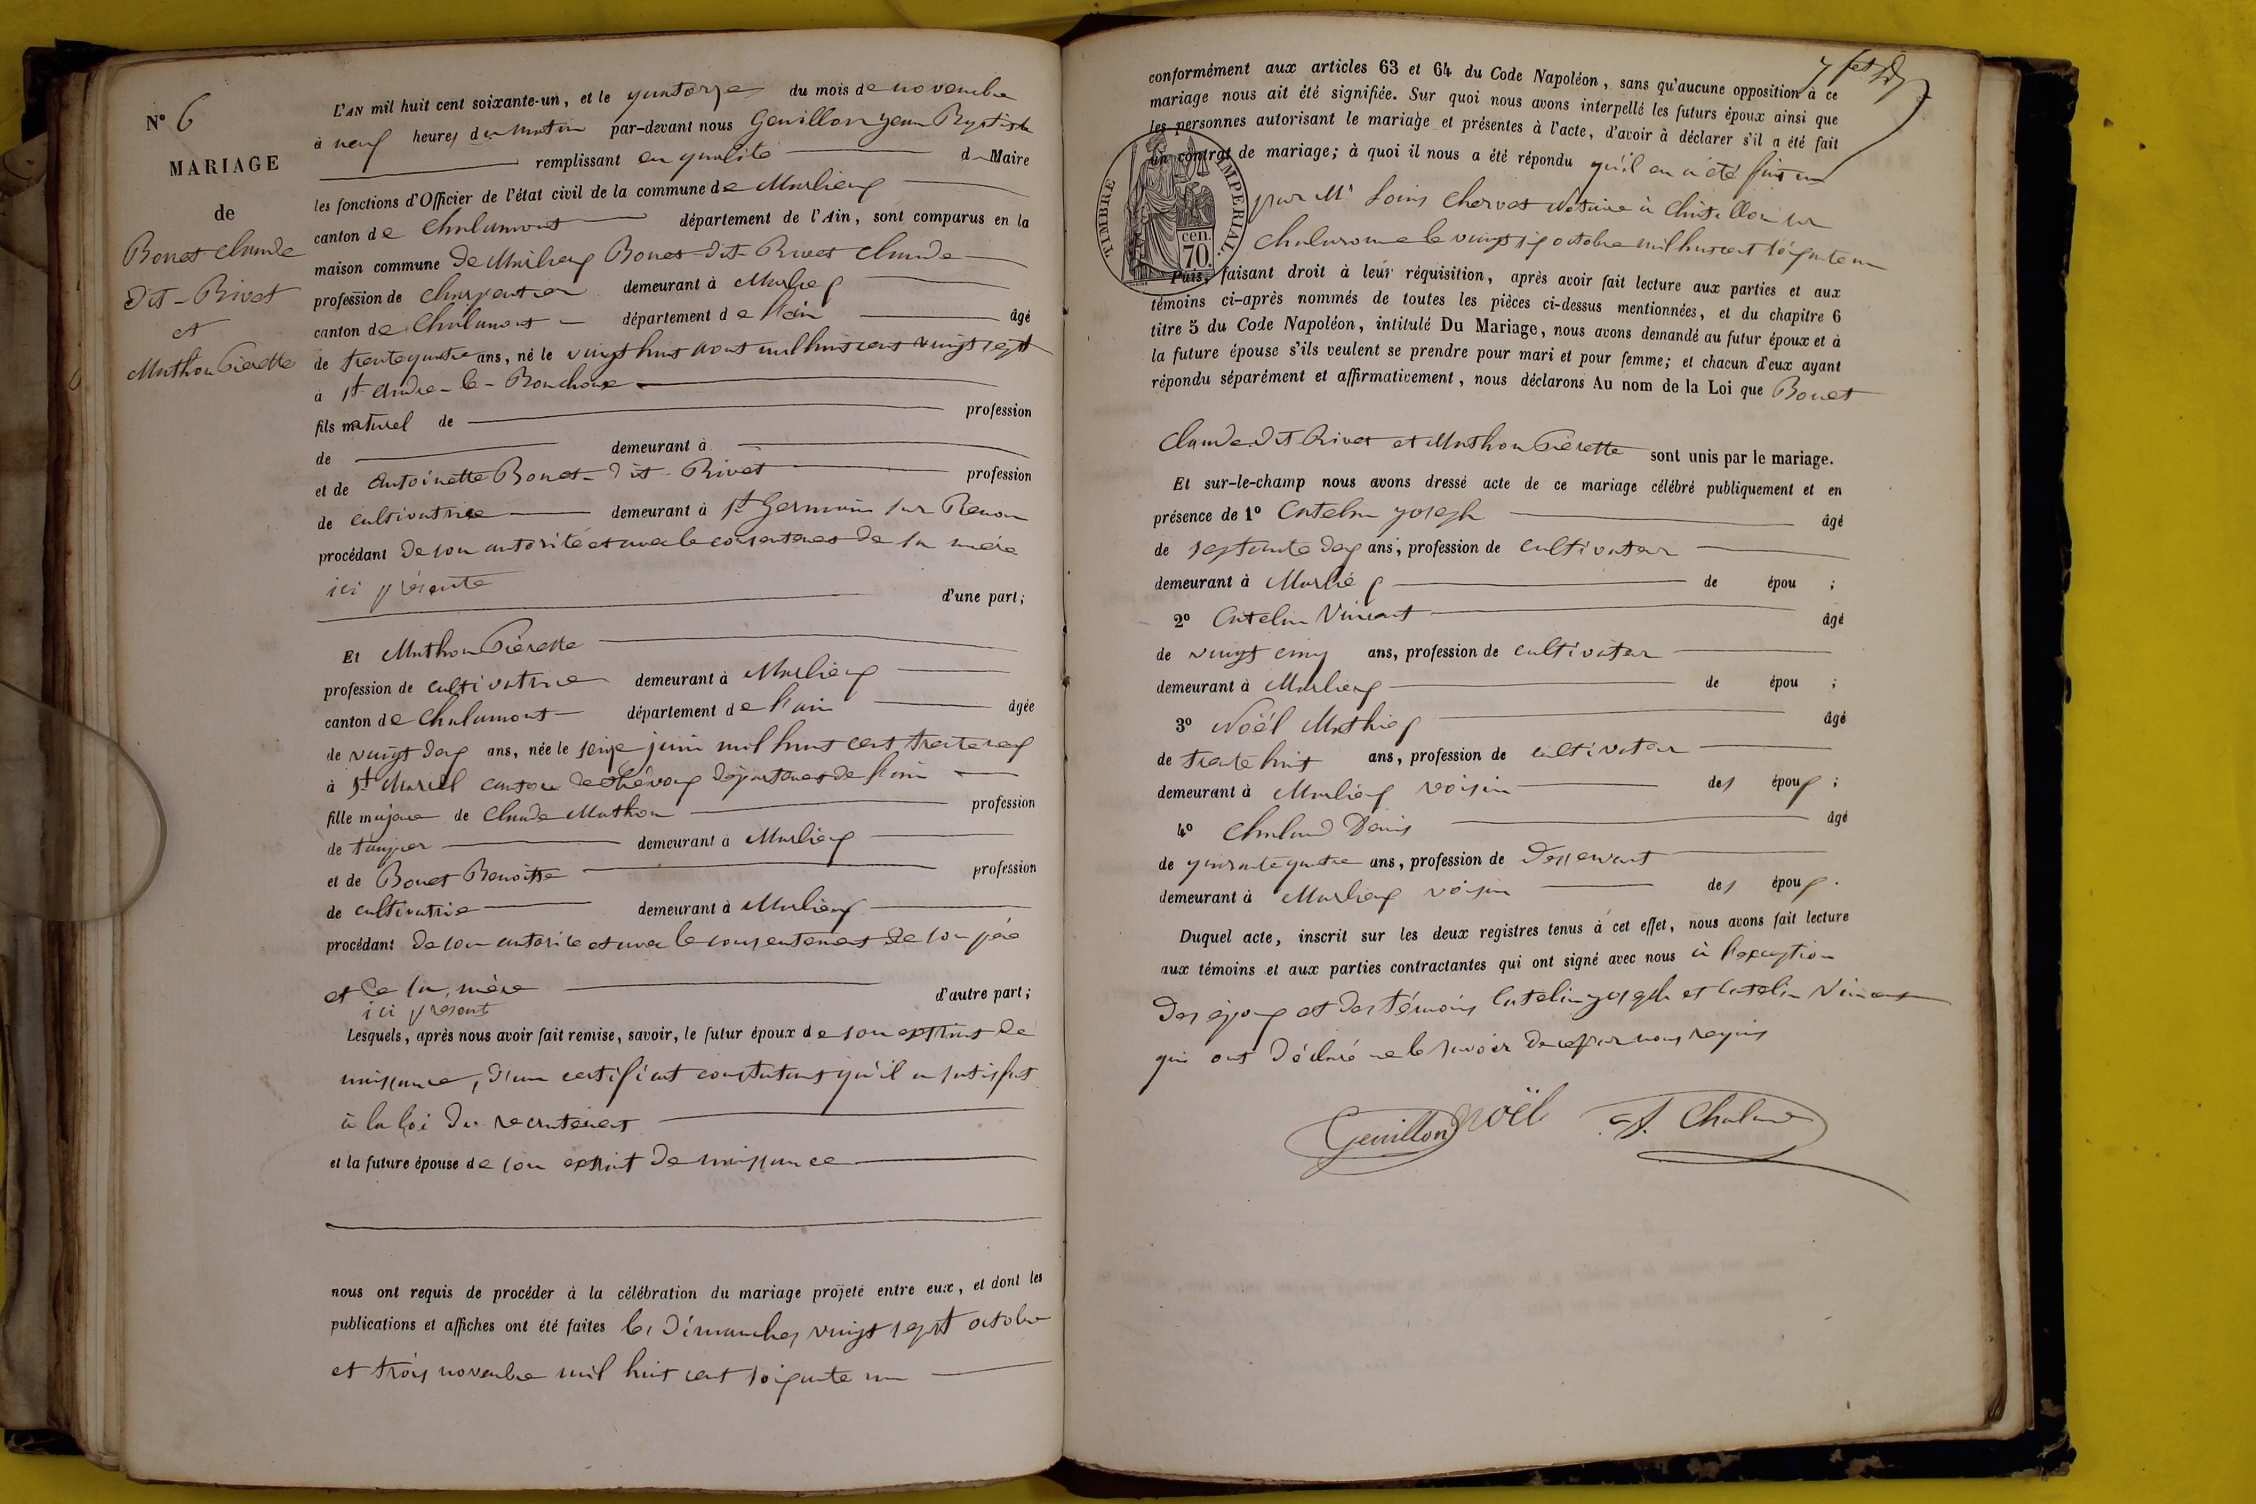 N° 6
MARIAGE
de
Bonet Claude
dit - Rivet
et
Mathon Pierette
L'AN mil huit cent soixante-un, et le quatorze du mois de novembre
à neuf heures du matin par-devant nous Genillon Jean Baptiste
remplissant en qualité de Maire
les fonctions d'Officier de l'état civil de la commune de Marlieux
canton de Chalamont département de l'Ain, sont comparus en la
maison commune de Marlieux Bonet dit Rivet Claude
profession de charpentier demeurant à Marlieux
canton de Chalamont département de l'ain âgé
de trente quatre ans, né le vingt huit aout mil huit cent vingt sept
à St andré - le - Bouchoux
fils naturel de profession
de demeurant à
et de antoinette Bonet - dit - Rivet profession
de cultivatrice demeurant à St Germain sur Renon
procédant de son autorité et avec le consentement de sa mère
ici présente
d'une part;
Et Mathon Pierette
profession de cultivatrice demeurant à Marlieux
canton de Chalamont département de l'ain âgée
de vingt deux ans, née le seize juin mil huit cent trente neuf
à St Marcel canton de trévoux département de l'ain
fille majeure de Claude Mathon profession
de demeurant à Marlieux
et de Bonet Benoitte profession
de cultivatrice demeurant à Marlieux
procédant de son autorité et avec le consentement de son père
et de sa mère d'autre part;
ici présent
Lesquels, après nous avoir fait remise, savoir, le futur époux de son extrait de
naissance, d'un certificat constatant qu'il a satisfait
à la loi du recrutement
et la future épouse de son extrait de naissance
nous ont requis de procéder à la célébration du mariage projeté entre eux, et dont les
publications et affiches ont été faites les dimanches vingt sept octobre
et trois novembre mil huit cent soixante un
conformément aux articles 63 et 64 du Code Napoléon, sans qu'aucune opposition à ce
mariage nous ait été signifiée. Sur quoi nous avons interpellé les futurs époux ainsi que
les personnes autorisant le mariage et présentes à l'acte, d'avoir à déclarer s'il a été fait
un contrat de mariage; à quoi il nous a été répondu qu'il en a été fait un
TIMBRE IMPERIAL.
cen.
70.
par Me Louis Chervet notaire à Chatillon sur
Chalaronne le vingt six octobre mil huit cent soixante un
Puis, faisant droit à leur réquisition, après avoir fait lecture aux parties et aux
témoins ci-après nommés de toutes les pièces ci-dessus mentionnées, et du chapitre 6
titre 5 du Code Napoléon, intitulé Du Mariage, nous avons demandé au futur époux et à
la future épouse s'ils veulent se prendre pour mari et pour femme; et chacun d'eux ayant
répondu séparément et affirmativement, nous déclarons Au nom de la Loi que Bonet
Claude dit Rivet et Mathon Pierette sont unis par le mariage.
Et sur-le-champ nous avons dressé acte de ce mariage célébré publiquement et en
présence de 1° Catelin Joseph âgé
de septante deux ans, profession de cultivateur
demeurant à Marlieux de épou ;
2° Catelin Vincent âgé
de vingt cinq ans, profession de cultivateur
demeurant à Marlieux de épou ;
3° Noël Mathieu âgé
de trente huit ans, profession de cultivateur
demeurant à Marlieux voisin des époux ;
4° Chaland Denis âgé
de quarante quatre ans, profession de desservant
demeurant à Marlieux voisin des époux.
Duquel acte, inscrit sur les deux registres tenus à cet effet, nous avons fait lecture
aux témoins et aux parties contractantes qui ont signé avec nous à l'exception
des époux et des témoins Catelin Joseph et Catelin Vincent
qui ont déclaré ne le savoir de ce par nous requis
Genillon Noël Chaland